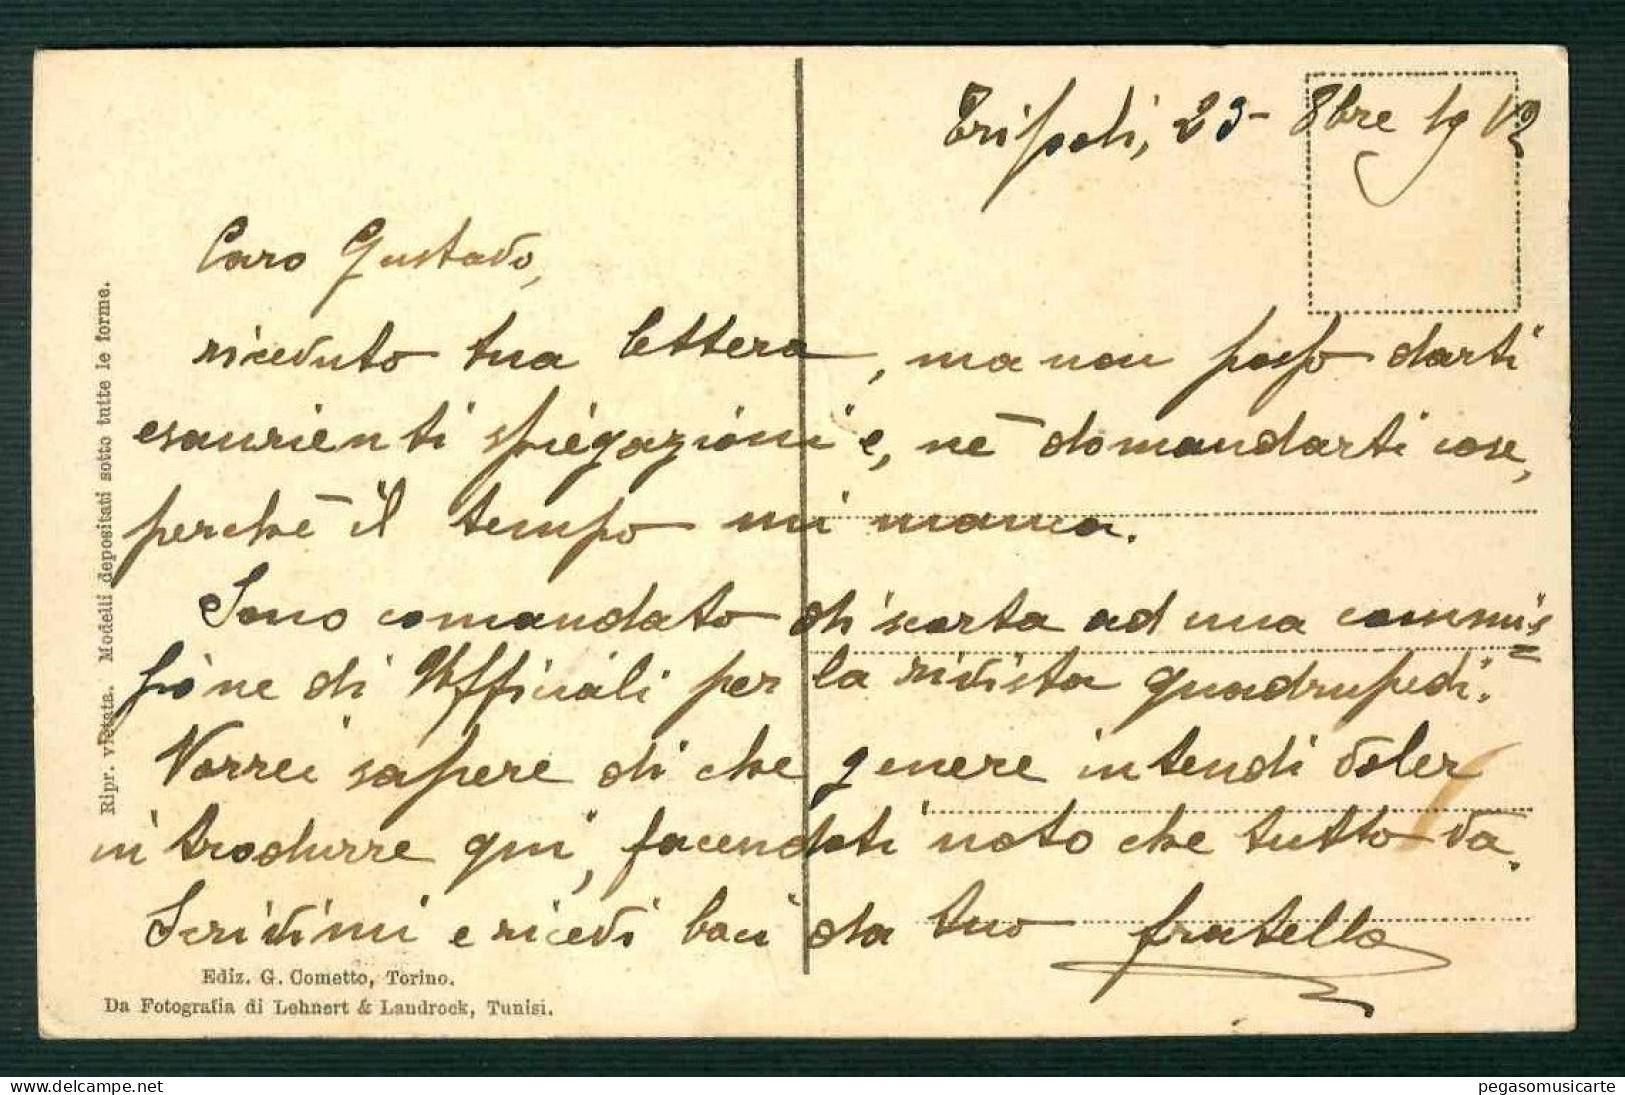 Tripoli, 23- 8bre 1912
Caro Gustavo,
ricevuto tua lettera, ma non posso darti
esaurienti spiegazioni e, nè domandarti cose,
perchè il tempo mi manca.
Sono comandato di scorta ad una commis=
sione di Ufficiali per la rivista quadrupedi.
Vorrei sapere di che genere intendi voler
introdurre qui, facendoti noto che tutto va.
Scrivimi e ricevi baci da tuo fratello
Ripr. vietata. Modelli depositati sotto tutte le forme.
Ediz. G. Cometto, Torino.
Da Fotografia di Lehnert & Landrock, Tunisi.
delcampe.net
pegasomusicarte